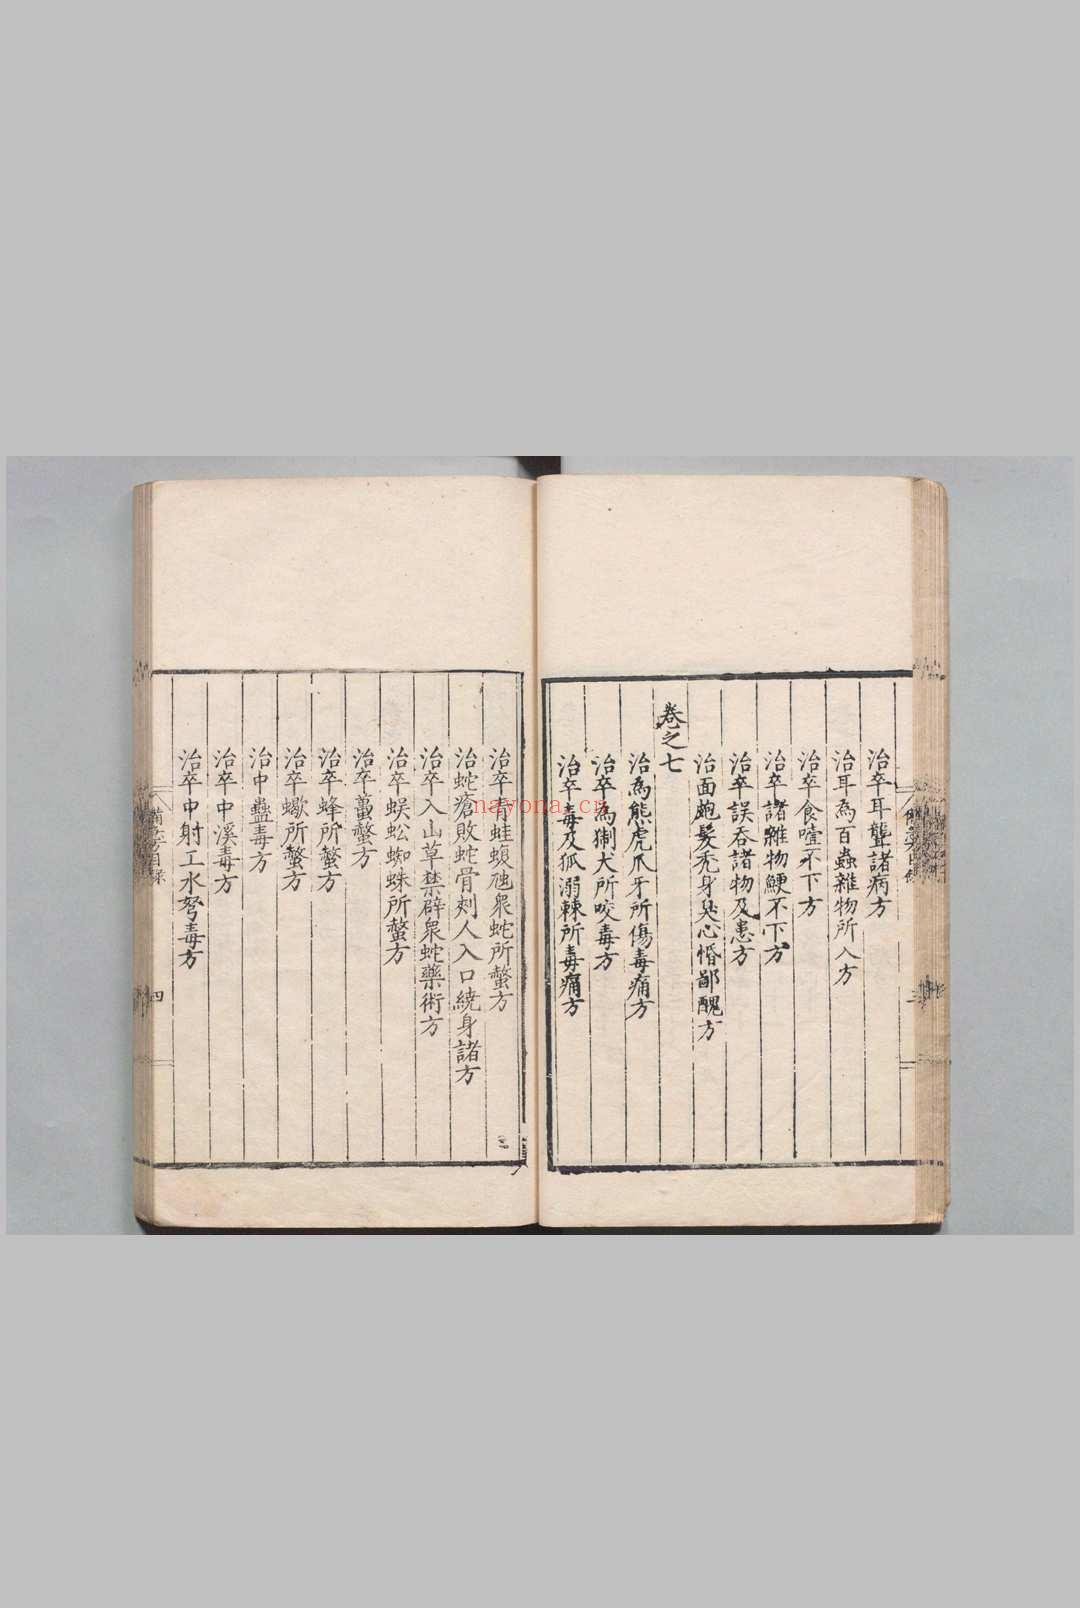 治卒耳聾諸病方
治耳為百蟲雜物所入方
治卒食噎不下方
治卒諸雜物鯁不下方
治卒誤吞諸物及患方
治面皰髮禿身臭心惛鄙醜方
卷之七
治為熊虎爪牙所傷毒痛方
治卒為猘犬所咬毒方
治卒毒及狐溺棘所毒痛方
治卒青蛙蝮虺眾蛇所螫方
治蛇瘡敗蛇骨刾人入口繞身諸方
治卒入山草禁辟眾蛇藥術方
治卒蜈蚣蜘蛛所螫方
治卒蠆螫方
治卒蜂所螫方
治卒蠍所螫方
治中蠱毒方
治卒中溪毒方
治卒中射工水弩毒方
四
nayona.cn